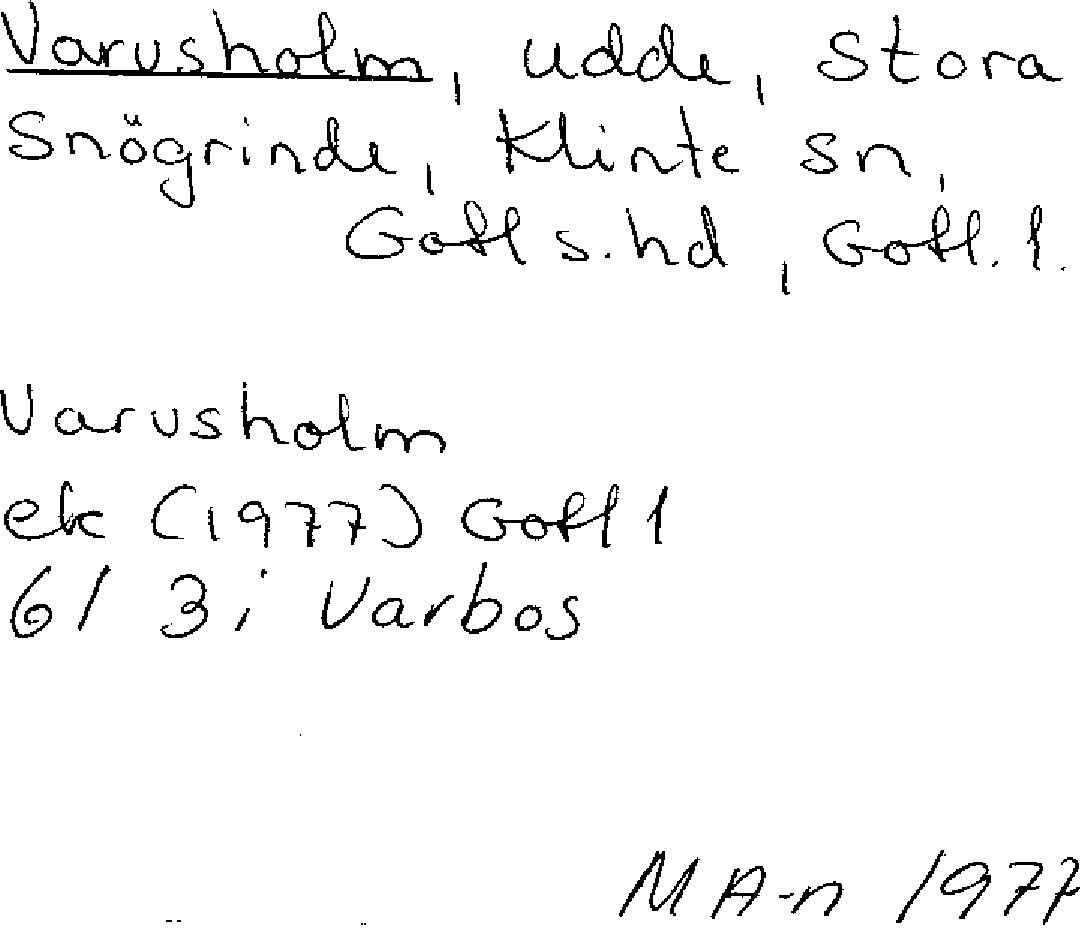 Varusholm, udde, Stora
Snögrinde, Klinte sn,
Gotl s. hd, Gotl. l.
Varusholm
ek (1977) Gotl l
6I 3i Varbos
MA-n 1977